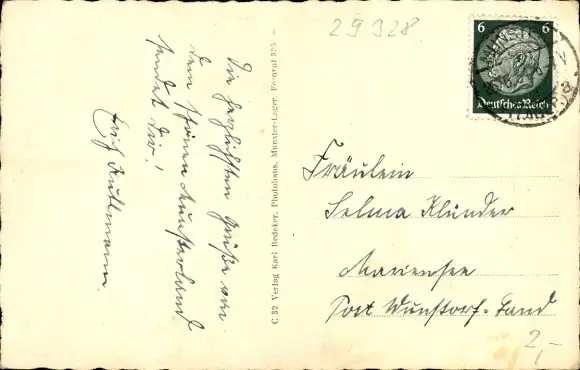 29328
6 6
Deutsches Reich
Die herzlichsten Grüße vom
dem schönen Munsterland
sendet dir!
Erich Kullmann.
C 32 Verlag Karl Redeker, Photohaus, Munster-Lager, Fernruf 325
Fräulein
Selma Klünder
Mariensee
Post Wunstorf-Land
2,-